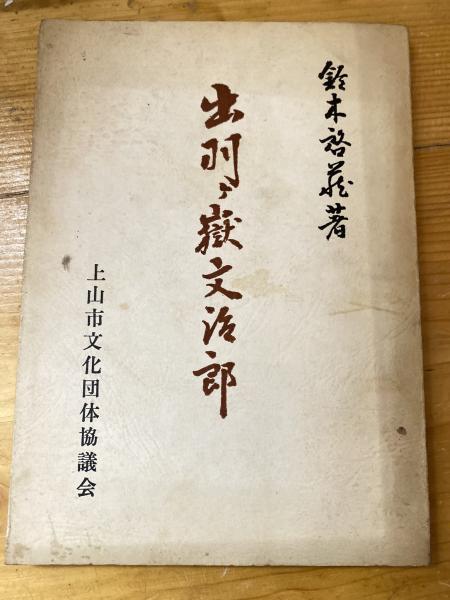 鈴木啓蔵著
出羽ヶ嶽文治郎
上山市文化団体協議会